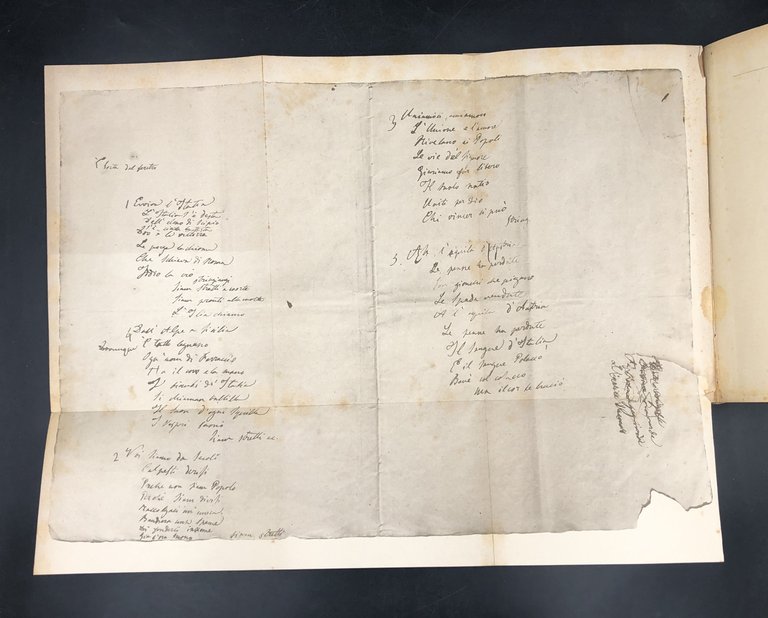 1 Evviva l'Italia
L'Italia s'è desta
Dell'elmo di Scipio
S'è cinta la testa
Dov'è la vittoria
Le porga la chioma
Che schiava di Roma
Iddio la creò
Stringiamci
Siam stretti a coorte
Siam pronti alla morte
L'Italia chiamò
4 Dall'Alpe a Sicilia
Dovunque è Legnano
Ogn'uom di Ferruccio
Ha il core e la mano
I bimbi d'Italia
Si chiaman Balilla
Il suon d'ogni squilla
I Vespri suonò
Siam stretti ec.
2 Noi siamo da secoli
Calpesti derisi
Perché non siam Popolo
Perché siam divisi
Raccolgaci un'unica
Bandiera una speme
Di fonderci insieme
Già l'ora suonò
Siam stretti
3 Uniamoci, uniamoci
L'Unione e l'amore
Rivelano ai Popoli
Le vie del Signore
Giuriamo far libero
Il suolo natio
Uniti per Dio
Chi vincer ci può
5. Ah l'aquila
Le penne ha perdute
Le spade vendute
A l'aquila d'Austria
Le penne ha perdute
Il sangue d'Italia
E il sangue Polacco
Bevé col cosacco
Ma il cor le bruciò